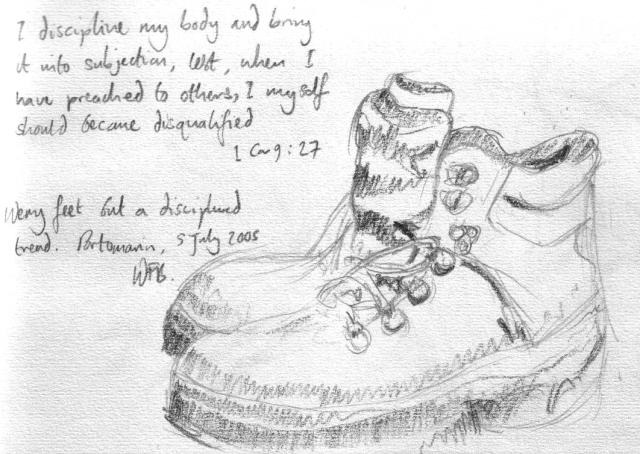 I discipline my body and bring
it into subjection, lest, when I
have preached to others, I myself
should become disqualified
1 Cor 9:27
Weary feet but a disciplined
tread. Portomarin, 5 July 2005